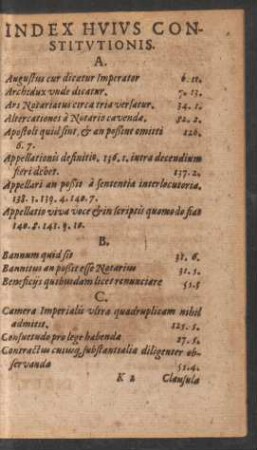 INDEX HVIVS CON-
STITVTIONIS.
A.
Augustus cur dicatur Imperator 6. 11.
Archidux vnde dicatur. 7. 13.
Ars Notariatus circa tria versatur. 34. 1.
Altercationes à Notario cavendæ. 82. 2.
Apostoli quid sint, & an possint omitti 126.
6. 7.
Appellationis definitio. 136. 1. intra decendium
fieri debet. 137. 2.
Appellari an possit à sententia interlocutoria.
138. 3. 139. 4. 140. 7.
Appellatio viva voce & in scriptis quomodo fiat
140. 8. 141. 9. 10.
B.
Bannum quid sit 31. 6.
Bannitus an possit esse Notarius 31. 5.
Beneficijs quibusdam licet renunciare 51.5
C.
Camera Imperialis vltra quadruplicam nihil
admittit. 125. 5.
Consuetudo pro lege habenda 27. 5.
Contractus cuiusq; substantialia diligenter ob-
servanda 51.4.
K 2 Clausula